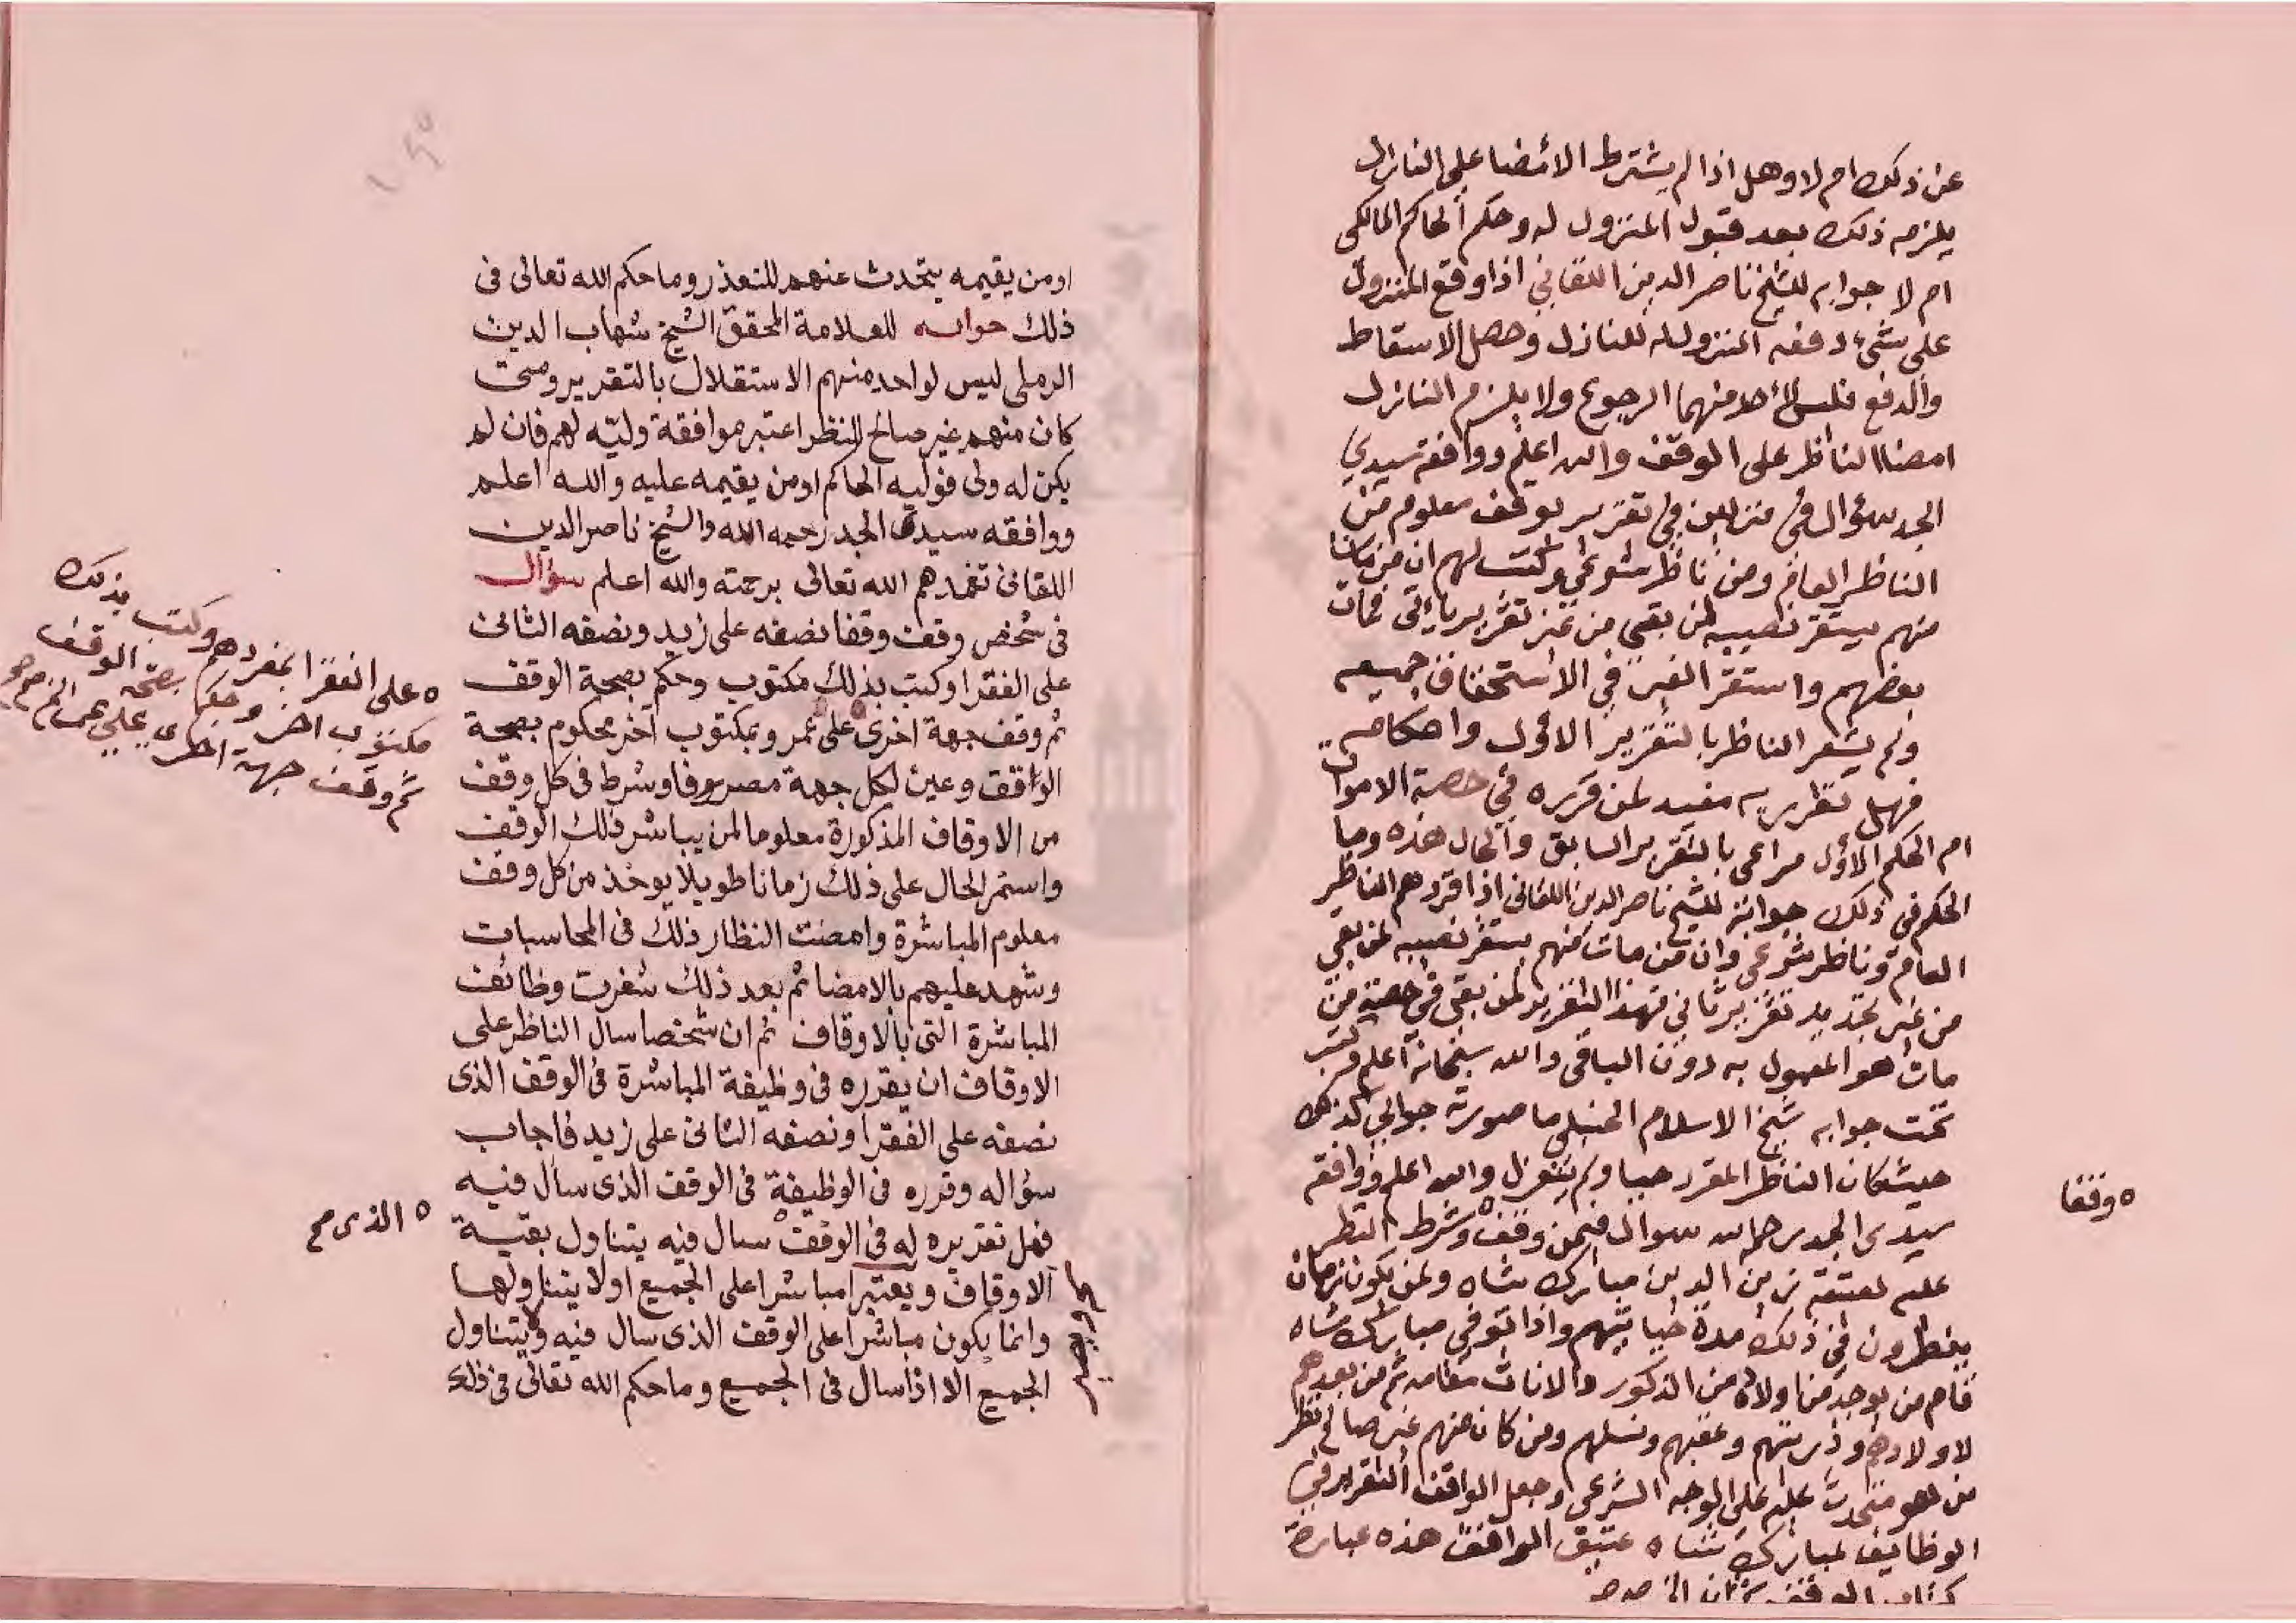 عن ذلك ام لا وهل اذا لم يشترط الامضا على النازل
يلزمه ذلك بعد قبول المنزول له وحكم الحاكم المالكى
ام لا جوابه للشيخ ناصر الدين اللقاني اذا وقع المنزول
على شئ دفعه المنزول له للنازل وحصل الاسقاط
والدفع فليس لأحد منهما الرجوع ولا يلزم النازل
امضا الناظر على الوقف والله اعلم ووافقه سيدي
الجد سؤال في منزلين في تقرير بوقف معلوم من
الناظر العام ومن ناظر شرعي وكتب لهم ان من مات
منهم يستقر نصيبه لمن بقى من غير تقرير يأتى فمات
بعضهم واستقر الغير في الاستحقاق جميعه
ولم يشعر الناظر بالتقرير الاول واحكامه
فهل تقريره مفيد لمن قرره في حصة الاموات
ام الحكم الاول مراعى بالتقرير السابق والحال هذه وما
الحكم في ذلك جوابه للشيخ ناصر الدين اللقانى اذا قررهم الناظر
العام وناظر شرعي وان من مات منهم يستقر نصيبه لمن بقي
من غير تجديد تقرير ثاني فهذا التقرير لمن بقى في حصة من
مات هو المعمول به دون الباقى والله سبحانه اعلم وكتب
تحت جوابه شيخ الاسلام الحنبلى ما صورته جوابي كذلك
حيث كان الناظر المقرر حيا ولم ينعزل والله اعلم ووافقه
سيدى الجد رحمه الله سوال فيمن وقف وشرط النظر
عليه لعتقه زين الدين مبارك شاه ولمن يكون
ينظرون في ذلك مدة حياتهم واذا توفي مبارك شاه
قام من يوجد من اولاده من الذكور والاناث مقامه ثم من بعدهم
لاولادهم وذريتهم وعقبهم ونسلهم ومن كان منهم غير صالح نظر
من هو متحدث عليه على الوجه الشرعي وجعل الواقف التقرير في
الوظايف لمبارك شاه عتيق الواقف هذه عبارة
كتاب الوقف
٥ وقفا
اومن يقيمه يتحدث عنهم للتعذر وما حكم الله تعالى فى
ذلك جوابه للعلامة المحقق الشيخ شهاب الدين
الرملى ليس لواحد منهم الاستقلال بالتقرير ومتى
كان منهم غير صالح للنظر اعتبر موافقة وليّه لهم فان لم
يكن له ولى فوليه الحاكم اومن يقيمه عليه والله اعلم
ووافقه سيدى الجد رحمه الله والشيخ ناصر الدين
اللقانى تغمدهم الله تعالى برحمته والله اعلم سؤال
فى شخص وقف وقفا نصفه على زيد ونصفه الثانى
على الفقرا وكتب بذلك مكتوب وحكم بصحة الوقف
ثم وقف جهة اخرى على عمرو بمكتوب آخر محكوم بصحة
الواقف وعين لكل جهة مصروفا وشرط فى كل وقف
من الاوقاف المذكورة معلوما لمن يباشر ذلك الوقف
واستمر الحال على ذلك زمانا طويلا يوخذ من كل وقف
معلوم المباشرة وامضت النظار ذلك فى المحاسبات
وشهد عليهم بالامضا ثم بعد ذلك شغرت وظائف
المباشرة التى بالاوقاف ثم ان شخصا سال الناظر على
الاوقاف ان يقرره فى وظيفة المباشرة فى الوقف الذى
نصفه على الفقرا ونصفه الثانى على زيد فاجاب
سؤاله وقرره فى الوظيفة فى الوقف الذى سأل فيه
فهل تقريره له فى الوقف سال فيه يتناول بقية
الاوقاف ويعتبر مباشرا على الجميع اولا يتناولها
وانما يكون مباشرا على الوقف الذى سال فيه ولا يتناول
الجميع الا اذا سال فى الجميع وما حكم الله تعالى فى ذلك
٥ على الفقرا بمفردهم وكتب بذلك
مكتوب اخر وحكم بصحة الوقف
ثم وقف جهة اخرى على عمرو الخ صح
٥ الذى صح